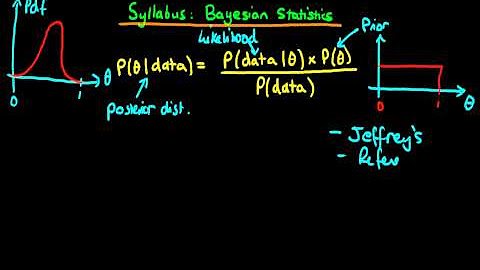 Pdf
Syllabus: Bayesian Statistics
Likelihood
Prior
P(θ|data) = P(data|θ) × P(θ)
P(data)
0 1 θ
Posterior dist.
0 1 θ
- Jeffrey's
- Refer